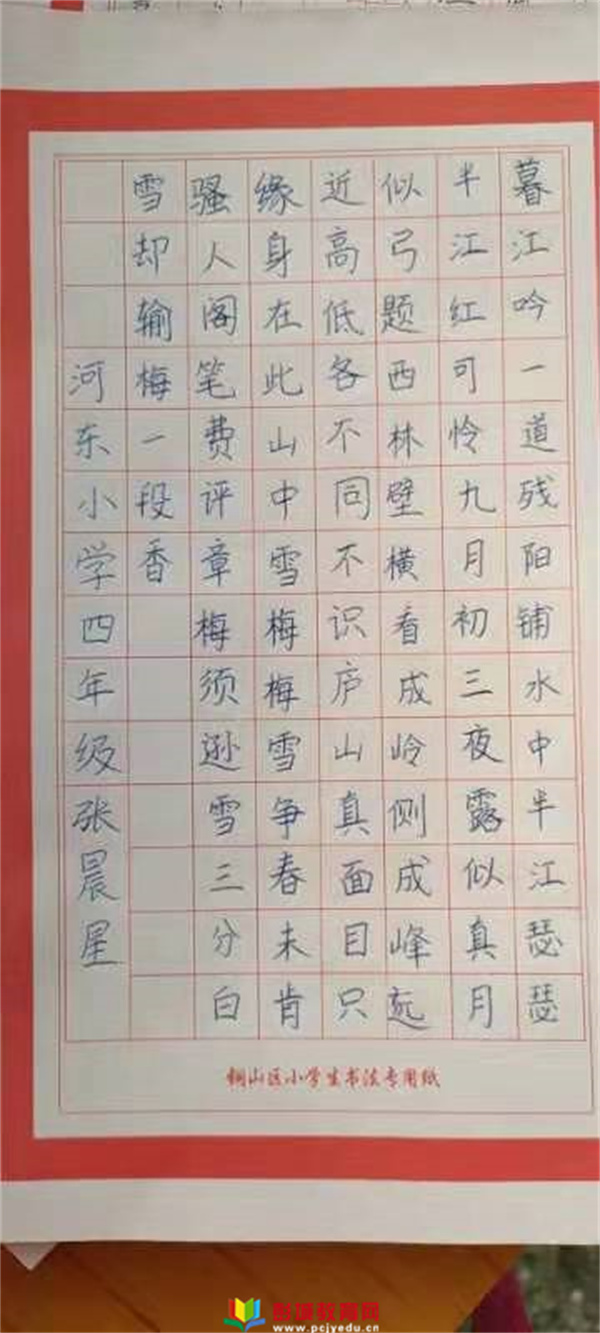 暮江吟一道残阳铺水中半江瑟瑟
半江红可怜九月初三夜露似真月
似弓题西林壁横看成岭侧成峰远
近高低各不同不识庐山真面目只
缘身在此山中雪梅梅雪争春未肯
骚人阁笔费评章梅须逊雪三分白
雪却输梅一段香
河东小学四年级张晨星
铜山区小学生书法专用纸
教育网
www.pcjyedu.cn